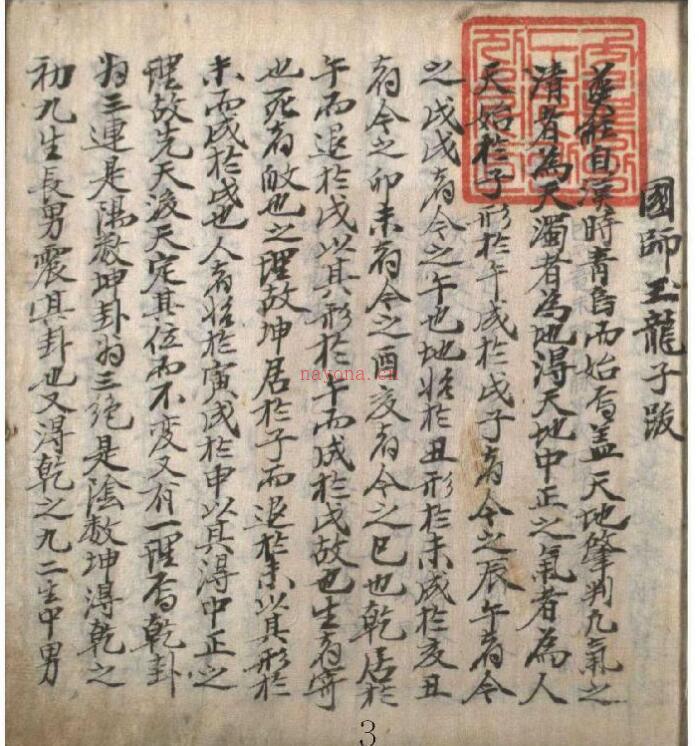 國師玉龍子跋
葬自漢時青烏而始焉盖天地肇判九氣之
清者為天濁者為地得天地中正之氣者為人
天始於子形於午成於戌子者今之辰午者今
之戌戌者今之午也地始於丑形於未成於亥丑
者今之卯未者今之酉亥者今之巳也乾居於
午而退於戌以其形於午而成於戌故也生者寄
也死者也之理故坤居於子而退於未以其形於
未而成於戌也人者始於寅成於申以其得中正之
理故先天後天定其位而不変又有一理焉乾卦
为三連是陽数坤卦为三絶是陰数坤得乾之
初九生長男震其卦也又得乾之九二生中男
nayona.cn
3